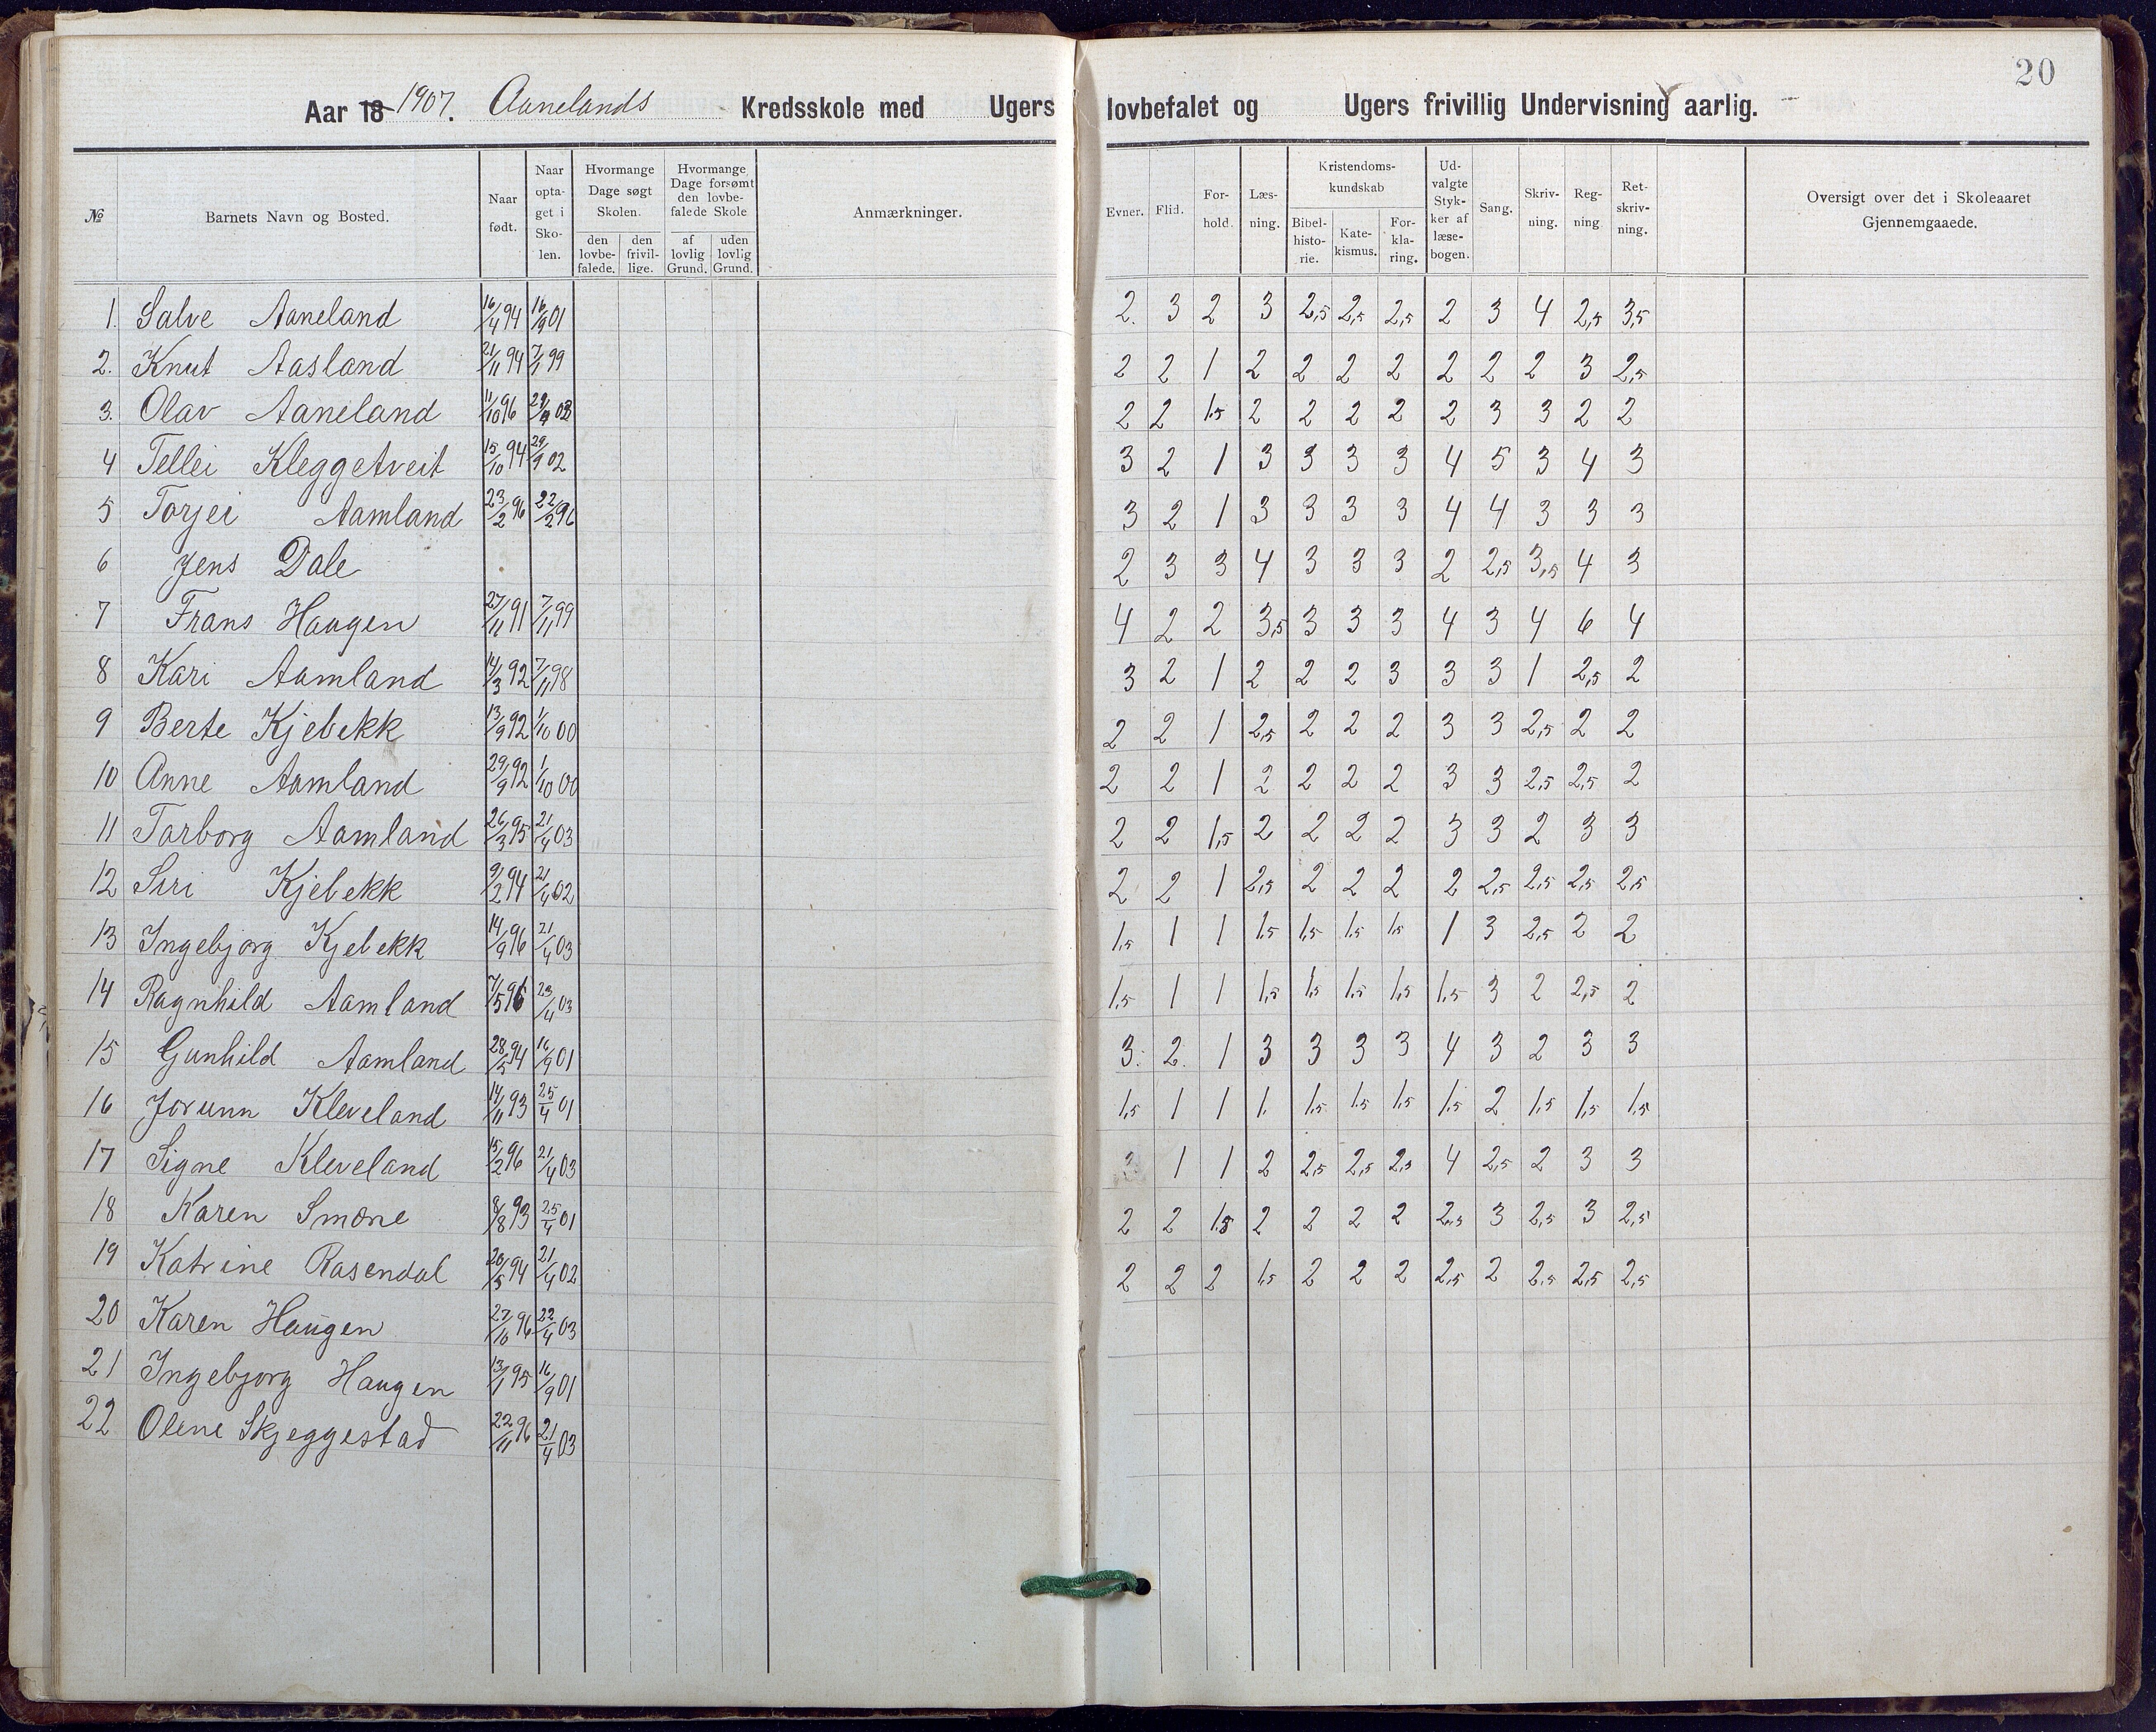 20
Aar 18 1907. Aanelands Kredsskole med Ugers lovbefalet og Ugers frivillig Undervisning aarlig.
№ Barnets Navn og Bosted. Naar født. Naar optaget i Skolen. Hvormange Dage søgt Skolen. den lovbefalede. den frivillige. Hvormange Dage forsømt den lovbefalede Skole af lovlig Grund. uden lovlig Grund. Anmærkninger. Evner. Flid. Forhold. Læsning. Kristendomskundskab Bibelhistorie. Katekismus. Forklaring. Udvalgte Stykker af læsebogen. Sang. Skrivning. Regning Retskrivning. Oversigt over det i Skoleaaret Gjennemgaaede.
1. Salve Aaneland 16/4 94 16/9 01 2. 3 2 3 2,5 2,5 2,5 2 3 4 2,5 3,5
2. Knut Aasland 21/11 94 7/11 99 2 2 1 2 2 2 2 2 2 2 3 2,5
3. Olav Aaneland 11/10 96 03 2 2 1,5 2 2 2 2 2 3 3 2 2
4 Tellei Kleggetveit 15/10 94 29/9 02 3 2 1 3 3 3 3 4 5 3 4 3
5 Torjei Aamland 23/2 96 22/2 96 3 2 1 3 3 3 3 4 4 3 3 3
6 Jens Dale 2 3 3 4 3 3 3 2 2,5 3,5 4 3
7 Frans Haugen 27/11 91 7/11 99 4 2 2 3,5 3 3 3 4 3 4 6 4
8 Kari Aamland 14/3 92 7/11 98 3 2 1 2 2 2 3 3 3 1 2,5 2
9 Berte Kjebekk 13/9 92 1/10 00 2 2 1 2,5 2 2 2 3 3 2,5 2 2
10 Anne Aamland 29/9 92 1/10 00 2 2 1 2 2 2 2 3 3 2,5 2,5 2
11 Tarborg Aamland 26/3 95 21/4 03 2 2 1,5 2 2 2 2 3 3 2 3 3
12 Siri Kjebekk 9/2 94 21/4 02 2 2 1 2,5 2 2 2 2 2,5 2,5 2,5 2,5
13 Ingebjorg Kjebekk 14/9 96 21/4 03 1,5 1 1 1,5 1,5 1,5 1,5 1 3 2,5 2 2
14 Ragnhild Aamland 7/5 96 23/4 03 1,5 1 1 1,5 1,5 1,5 1,5 1,5 3 2 2,5 2
15 Gunhild Aamland 28/5 94 16/9 01 3. 2. 1 3 3 3 3 4 3 2 3 3
16 Jorunn Kleveland 14/11 93 25/4 01 1,5 1 1 1. 1,5 1,5 1,5 1,5 2 1,5 1,5 1,5
17 Signe Kleveland 15/2 96 21/4 03 1 1 2 2,5 2,5 2,5 4 2,5 2 3 3
18 Karen Smone 8/8 93 25/4 01 2 2 1,5 2 2 2 2 2,5 3 2,5 3 2,5
19 Katrine Rasendal 20/5 94 21/4 02 2 2 2 1,5 2 2 2 2,5 2 2,5 2,5 2,5
20 Karen Haugen 27/10 96 22/4 03
21 Ingebjorg Haugen 13/1 95 16/9 01
22 Olene Skjeggestad 22/11 96 21/4 03